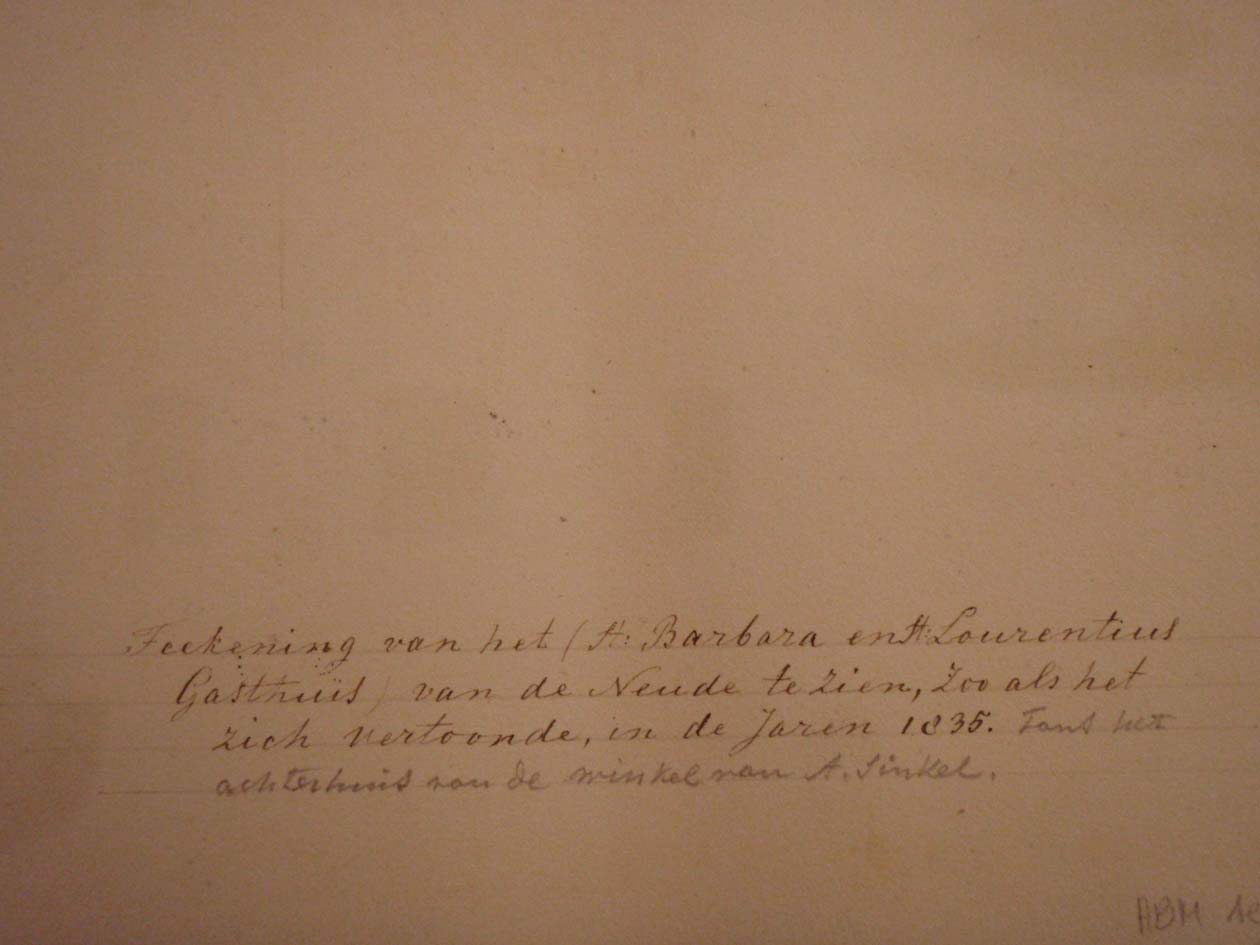 Teekening van het (St: Barbara en St: Lourentius
Gasthuis) van de Neude te zien, Zoo als het
zich vertoonde, in de Jaren 1835. Tans het
achterhuis van de winkel van A. Sinkel.
ABM